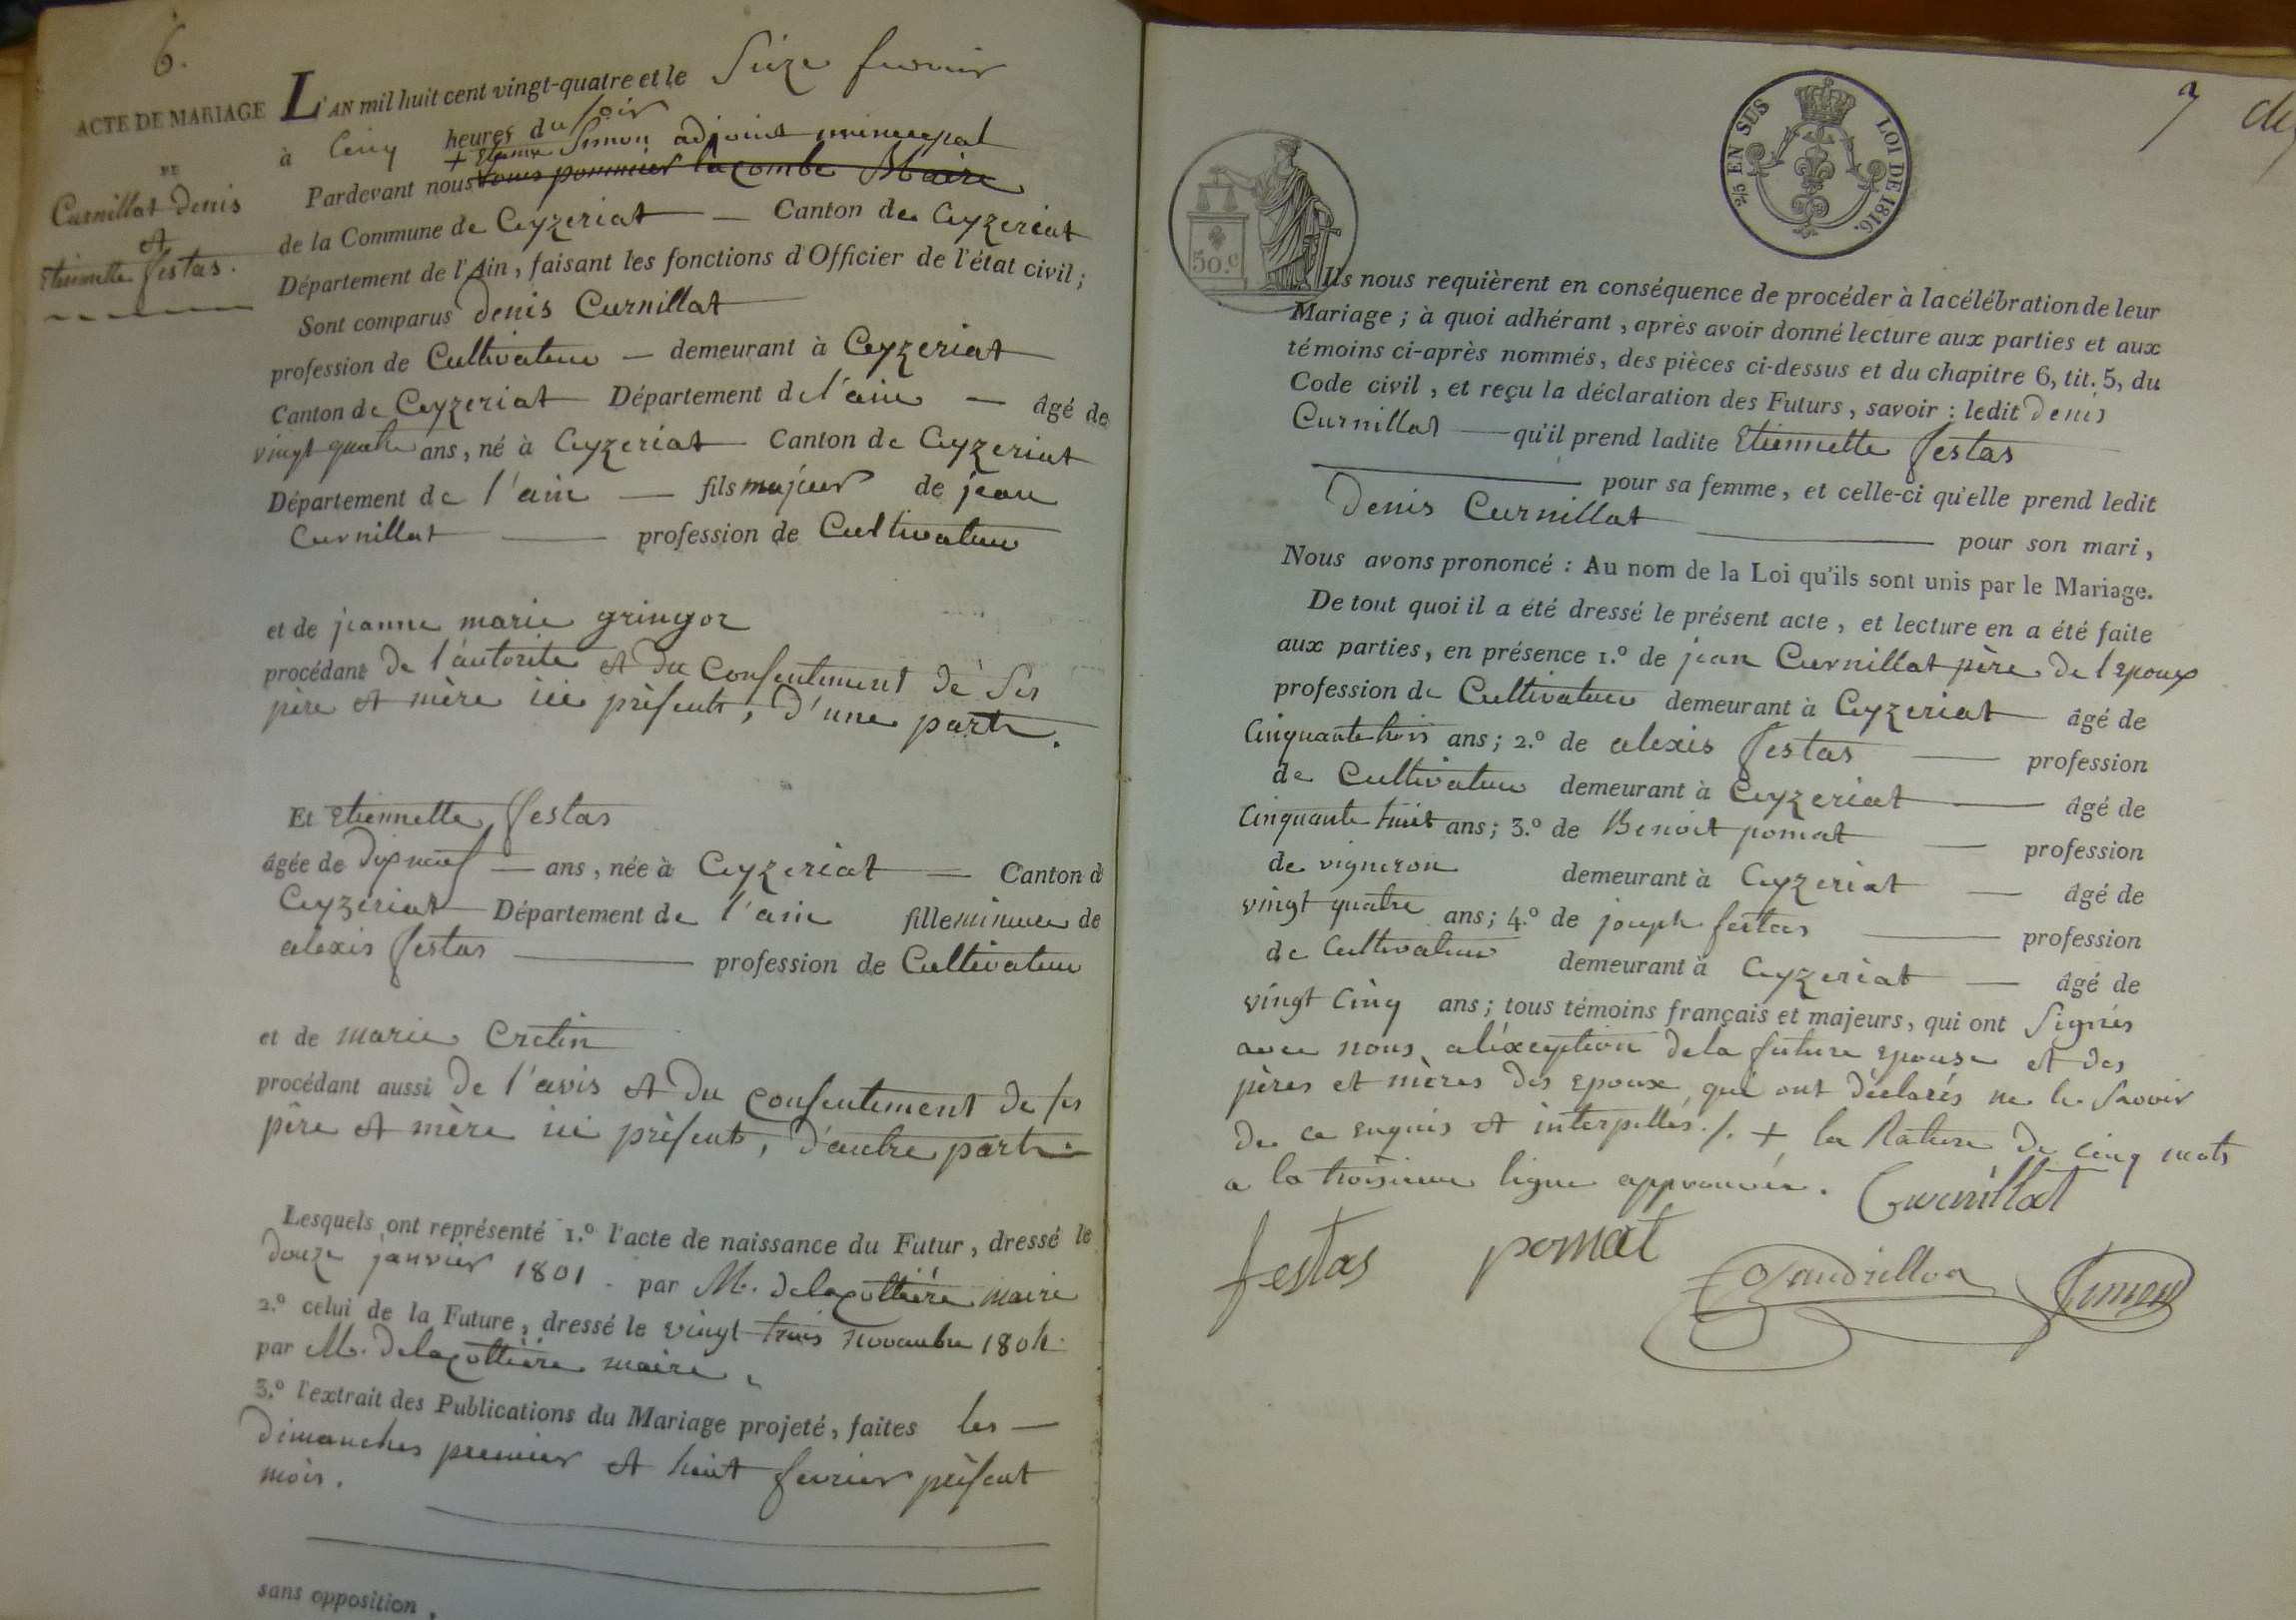 6.
ACTE DE MARIAGE
DE
Curnillat Denis
et
Etiennette festas.
L'AN mil huit cent vingt-quatre et le Seize fevrier
à Cinq heures du soir
+ Etienne Simon adjoint municipal
Pardevant nous Louis pommier lacombe Maire
de la Commune de Ceyzeriat Canton de Ceyzeriat
Département de l'Ain, faisant les fonctions d'Officier de l'état civil;
Sont comparus Denis Curnillat
profession de Cultivateur demeurant à Ceyzeriat
Canton de Ceyzeriat Département de l'ain âgé de
vingt quatre ans, né à Ceyzeriat Canton de Ceyzeriat
Département de l'ain fils majeur de jean
Curnillat profession de Cultivateur
et de jeanne marie gringoz
procédant de l'autorité et du Consentement de ses
père et mère ici présents, d'une part.
Et Etiennette festas
âgée de Dix neuf ans, née à Ceyzeriat Canton d
Ceyzeriat Département de l'ain fille mineure de
alexis festas profession de Cultivateur
et de marie Cretin
procédant aussi de l'avis et du Consentement de ses
père et mère ici présents, d'autre part.
Lesquels ont représenté 1.º l'acte de naissance du Futur, dressé le
douze janvier 1801. par M. delacottière maire
2.º celui de la Future, dressé le vingt trois novembre 1804
par M. delacottière maire,
3.º l'extrait des Publications du Mariage projeté, faites les
Dimanches premier et huit fevrier présent
mois.
sans opposition.
2/5 EN SUS
LOI DE 1816.
50.c
7
Ils nous requièrent en conséquence de procéder à la célébration de leur
Mariage; à quoi adhérant, après avoir donné lecture aux parties et aux
témoins ci-après nommés, des pièces ci-dessus et du chapitre 6, tit. 5, du
Code civil, et reçu la déclaration des Futurs, savoir: ledit Denis
Curnillat qu'il prend ladite Etiennette festas
pour sa femme, et celle-ci qu'elle prend ledit
Denis Curnillat pour son mari,
Nous avons prononcé: Au nom de la Loi qu'ils sont unis par le Mariage.
De tout quoi il a été dressé le présent acte, et lecture en a été faite
aux parties, en présence 1.º de jean Curnillat père de l'epoux
profession de Cultivateur demeurant à Ceyzeriat âgé de
Cinquante trois ans; 2.º de alexis festas profession
de Cultivateur demeurant à Ceyzeriat âgé de
Cinquante huit ans; 3.º de Benoit pomat profession
de vigneron demeurant à Ceyzeriat âgé de
vingt quatre ans; 4.º de joseph festas profession
de Cultivateur demeurant à Ceyzeriat âgé de
vingt Cinq ans; tous témoins français et majeurs, qui ont Signés
avec nous, à l'éxception de la future epouse et des
pères et mères des epoux qui ont déclarés ne le savoir
de ce enquis et interpellés./. + la Rature de cinq mots
a la troisieme ligne approuvée.
Curnillat
festas pomat Simon